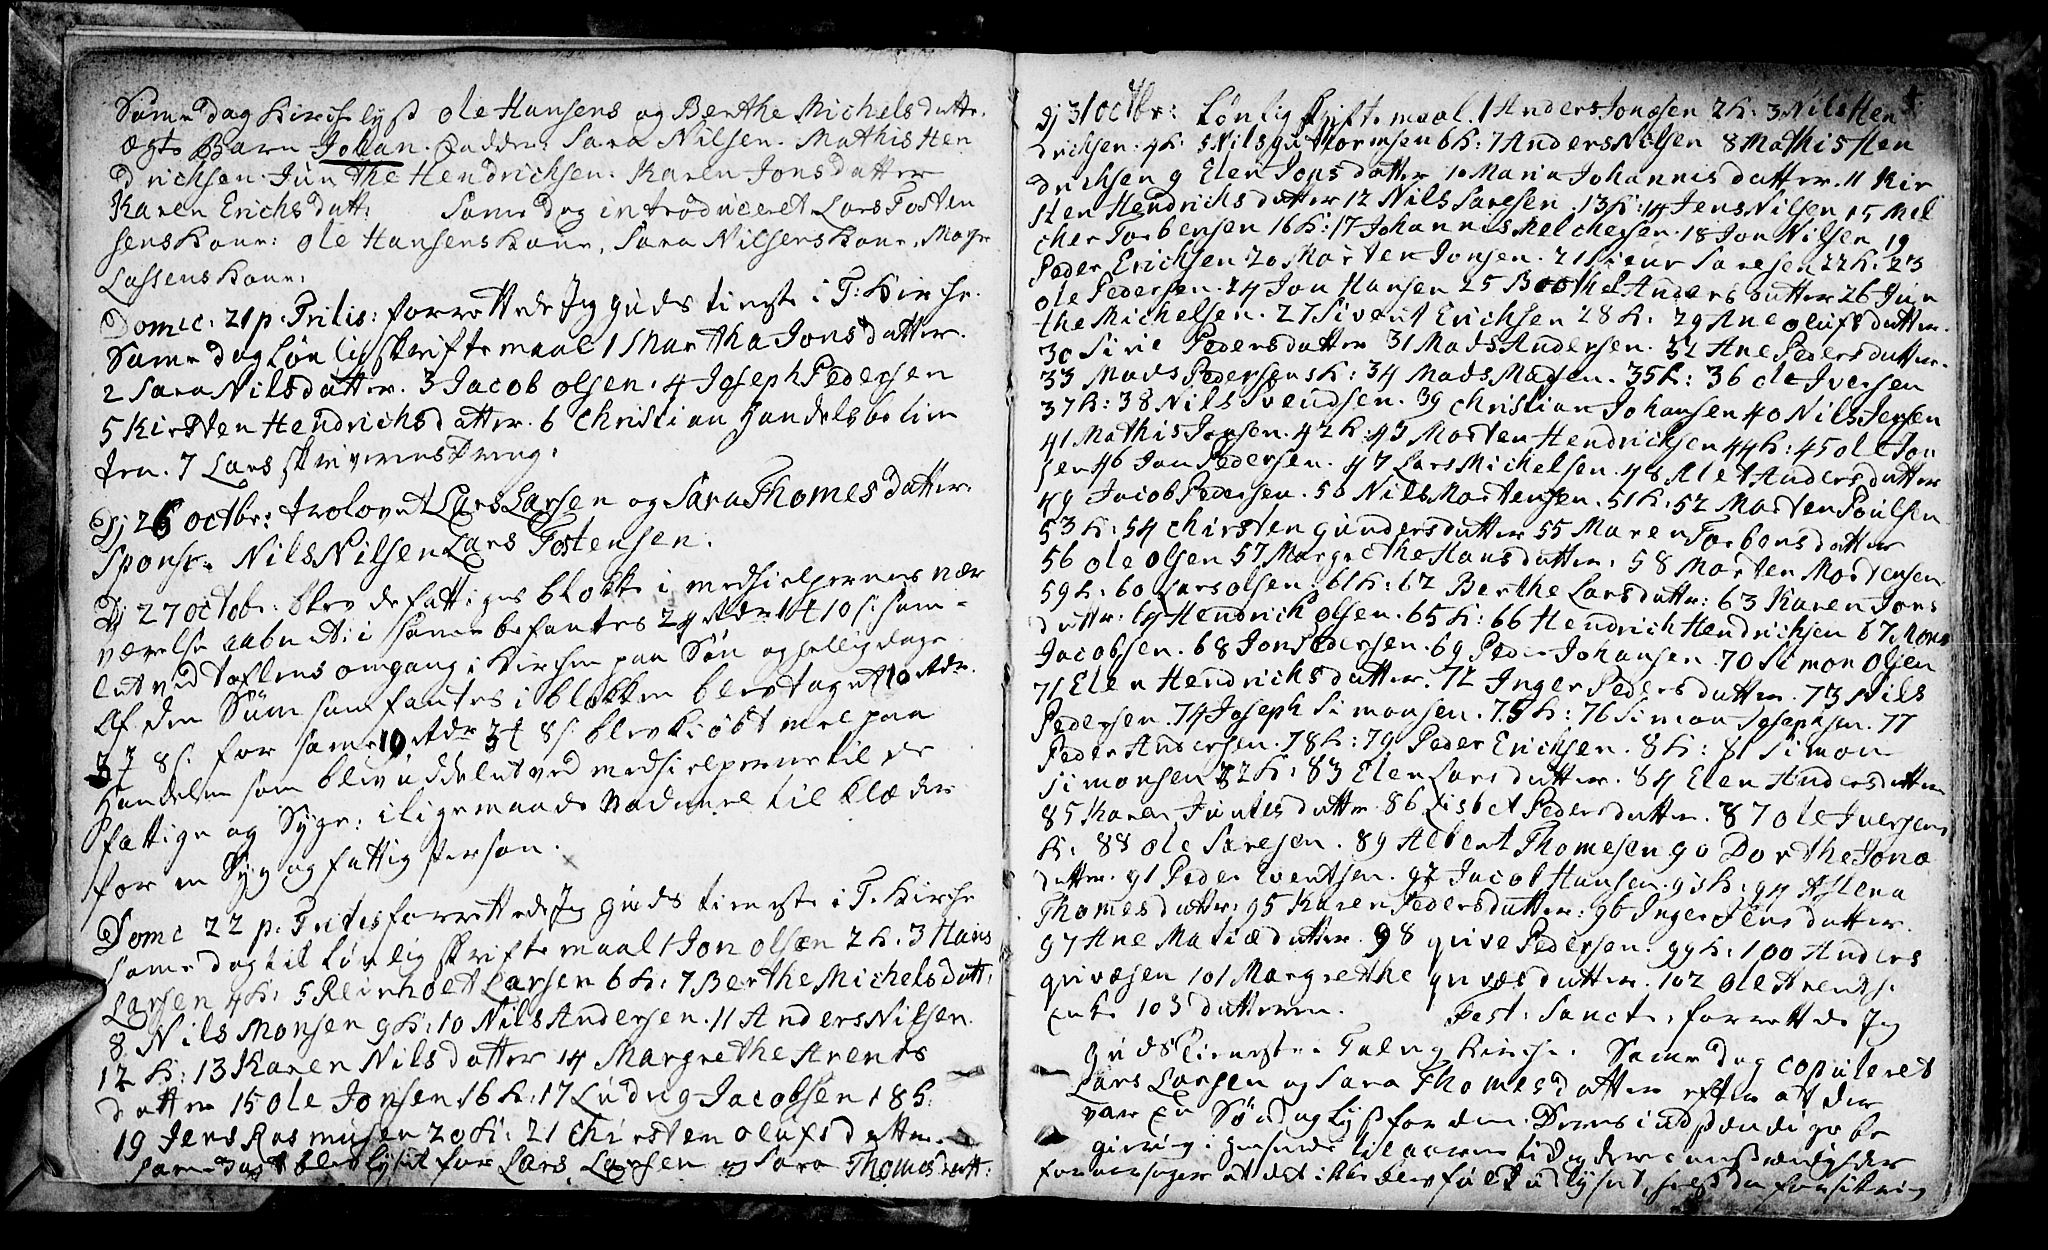 Same dag Kirchelyst Ole Hansens og Berthe Michels datt.
ægte Barn Johan. Fadder: Sara Nilsen. Mathis Hen
drichsen. Junthe Hendrichsen. Karen Jonsdatter
Karen Erichsdatt: Same dag introduceret Lars Tosten
sens Kone: Ole Hansens Kone, Sara Nilsens Kone,
Lassens Kone.
Domc: 21 p. Tritis: forrettede Jeg guds tieneste i T: Kirche.
Same dag Lønlig skriftemaal 1 Martha Jonsdatter.
2 Sara Nilsdatter. 3 Jacob Olsen. 4 Joseph Pedersen
5 Kirsten Hendrichsdatter. 6 Christian Handelsbetien
ten. 7 Lars skriverens Dreng.
Dj 26 Octbr: trolovet Lars Larsen og Sara Thomesdatter.
Spons: Nils Nilsen Lars Tostensen.
Dj 27 Octobr: blev de fattiges blokke i medhielpernes nær
værelse aabnet: i same befantes 24 Rdr 1 10 s. sam-
let ved taflens omgang i Kirchen paa Søn og hellig dage
Af den Sum som fantes i blokken blev taget 10 Rdr.
3 8 s. for same 10 Rdr 3 8 s blev kiøbt meel paa
Handelen som blev uddelet ved medhielperne til de
fattige og Syge: iligemaade Vadmel til klæder
for en Syg og fattig Person.
Domc 22 p. Tritis forrettede Jeg guds tieneste i T. Kirche
same dag til Lønlig skriftemaal 1 Jon Olsen 2 K. 3 Hans
Larsen 4 K: 5 Reinholt Larsen 6 K: 7 Berthe Michelsdatt:
8 Nils Monsen 9 K: 10 Nils Andersen. 11 Anders Nilsen
12 K: 13 Karen Nilsdatter 14 Margrethe Arents
datter 15 Ole Jonsen 16 K: 17 Ludvig Jacobsen 18 K:
19 Jens Rasmusen 20 K: 21 Chirsten Olufsdatter.
Same dag blev lyst for Lars Larsen og Sara Thomesdatt:
5.
Dj 31 Octbr: Lønlig skriftemaal. 1 Anders Jonsen 2 K: 3 Nils Hen
drichsen: 4 K: 5 Nils guttormsen 6 K: 7 Anders Nilsen 8 Mathis Hen
drichsen 9 Elen Jonsdatter 10 Maria Johannisdatter. 11 Kir
sten Hendrichsdatter 12 Nils Saresen. 13 K: 14 Jens Nilsen 15 Mel
cher Torbensen 16 K: 17 Johannis Melchersen. 18 Jon Nilsen 19
Peder Erichsen 20 Morten Jonsen. 21 Siour Saresen 22 K: 23
Ole Pedersen. 24 Jon Hansen 25 Berthel Andersdatter 26 Jun
the Michelsen. 27 Sivent Erichsen 28 K: 29 Ane Olufsdatter.
30 Sirie Pedersdatter 31 Mads Andersen. 32 Ane Pedersdatter.
33 Mads Pedersens K: 34 Mads Madsen. 35 K: 36 Ole Iversen
37 K: 38 Nils Svendsen. 39 Christian Johansen 40 Nils Jensen
41 Mathis Jonsen. 42 K: 43 Morten Hendrichsen 44 K: 45 Ole Jon
sen 46 Jon Pedersen. 47 Lars Michelsen. 48 Alet Andersdatter
49 Jacob Pedersen. 50 Nils Mortensen. 51 K: 52 Morten Poulsen
53 K: 54 Chirsten gundersdatter 55 Maren Torbensdatter
56 Ole Olsen 57 Margrethe Hansdatter. 58 Morten Mortensen
59 K: 60 Lars Olsen. 61 K: 62 Berthe Larsdatter: 63 Karen Jons
datter. 64 Hendrich Olsen. 65 K: 66 Hendrich Hendrichsen 67 Mons
Jacobsen. 68 Jon Pedersen. 69 Peder Johansen. 70 Simon Olsen
71 Elen Hendrichsdatter. 72 Inger Pedersdatter. 73 Nils
Pedersen. 74 Joseph Simonsen. 75 K: 76 Simon Josephsen. 77
Peder Andersen. 78 K: 79 Peder Erichsen. 8 K: 81 Simon
Simonsen 82 K: 83 Elen Larsdatter. 84 Elen Andersdatter
85 Karen Juntesdatter. 86 Lisbet Pedersdatter. 87 Ole Iversens
K: 88 Ole Saresen. 89 Albert Thomesen 90 Dorthe Jons
datter. 91 Peder Eventsen. 92 Jacob Hansen. 93 K: 94 Aslena
Thomesdatter: 95 Karen Pedersdatter: 96 Inger Jensdatter.
97 Ane Matiædatter. 98 qvive Pedersen: 99 K: 100 Anders
qvivæsen 101 Margrethe qvivæsdatter. 102 Ole Arents.
Enke 103 datteren. Fest. Sanct: forrettede Jeg
guds Tieneste i Talvig Kirche. Same dag copuleret
Lars Larsen og Sara Thomesdatter efter at der
var En Søndag lyst for dem. Deres indstændige be
giering i henseende til aarens tid og deres omstændigheder
foraarsager at det ikke blev fuldt udlyset,